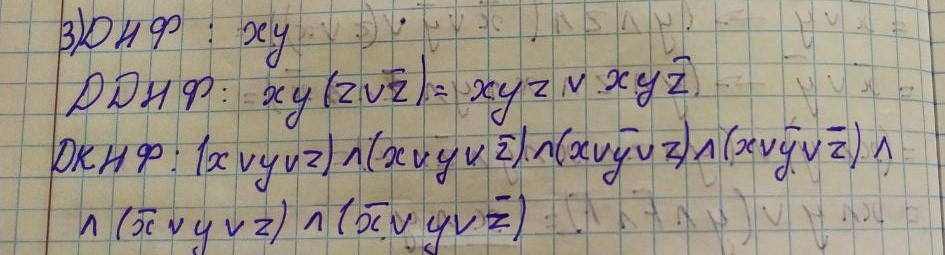 3) ДНФ : xy
ДДНФ: xy(z∨z̅) = xyz ∨ xyz̅
ДКНФ: (x∨y∨z)∧(x∨y∨z̅)∧(x∨y̅∨z)∧(x∨y̅∨z̅)∧
∧(x̅∨y∨z)∧(x̅∨y∨z̅)